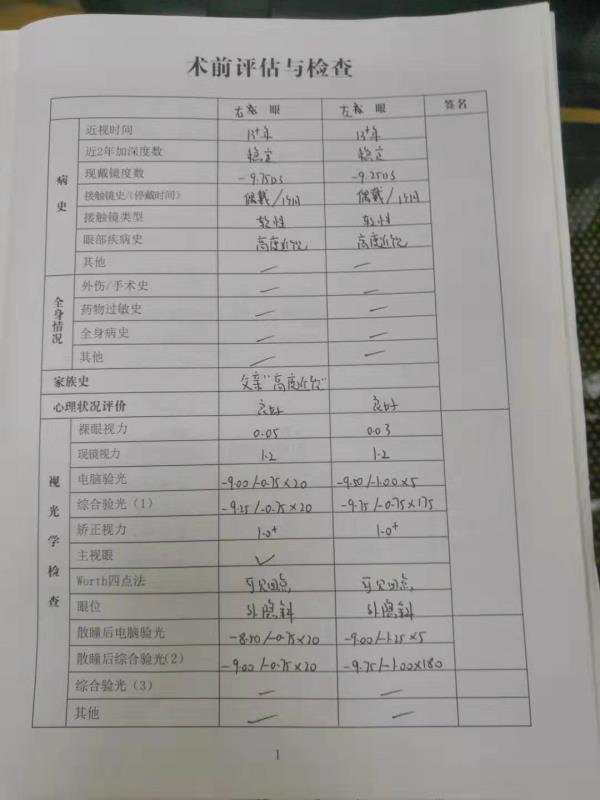 术前评估与检查
右 眼 左 眼 签名
病史
近视时间 13⁺年 13⁺年
近2年加深度数 稳定 稳定
现戴镜度数 -9.75DS -9.25DS
接触镜史/(停戴时间) 偶戴/1个月 偶戴/1个月
接触镜类型 软性 软性
眼部疾病史 高度近视 高度近视
其他 — —
全身情况
外伤/手术史 — —
药物过敏史 — —
全身病史 — —
其他 — —
家族史 父亲"高度近视"
心理状况评价 良好 良好
视光学检查
裸眼视力 0.05 0.03
现镜视力 1.2 1.2
电脑验光 -9.00/-0.75×20 -9.50/-1.00×5
综合验光(1) -9.25/-0.75×20 -9.75/-0.75×175
矫正视力 1.0⁺ 1.0⁺
主视眼 ✓
Worth四点法 可见四点 可见四点
眼位 外隐斜 外隐斜
散瞳后电脑验光 -8.50/-0.75×20 -9.00/-1.25×5
散瞳后综合验光(2) -9.00/-0.75×20 -9.75/-1.00×180
综合验光(3) — —
其他 — —
1